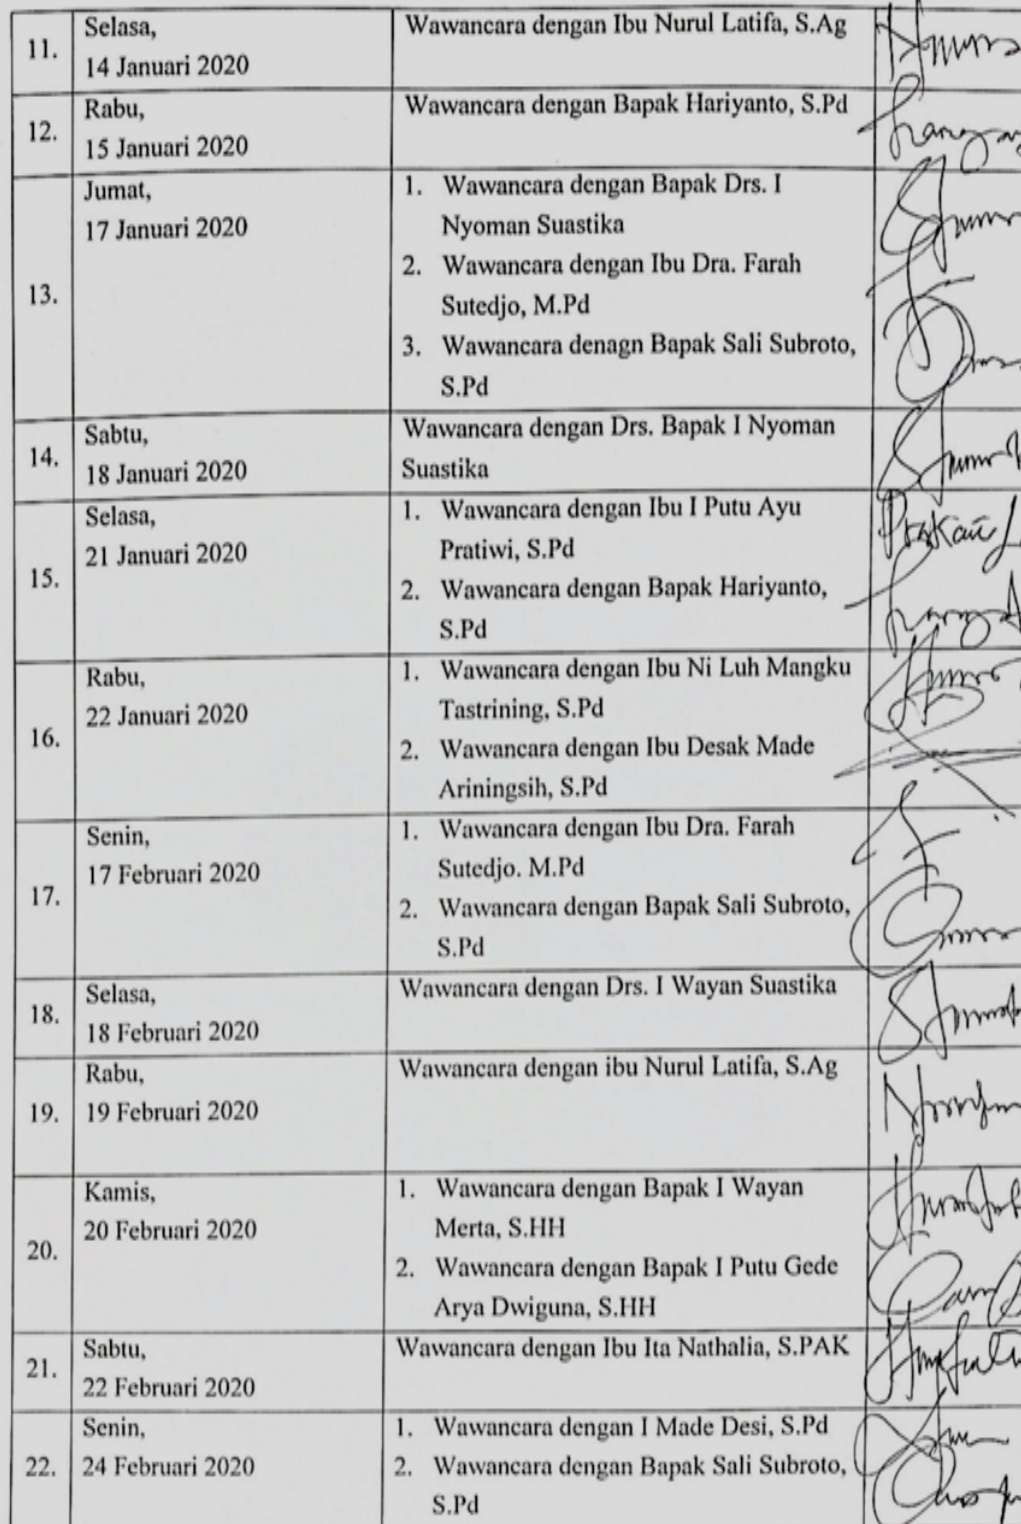 11.
Selasa,
14 Januari 2020
Wawancara dengan Ibu Nurul Latifa, S.Ag
12.
Rabu,
15 Januari 2020
Wawancara dengan Bapak Hariyanto, S.Pd
13.
Jumat,
17 Januari 2020
1. Wawancara dengan Bapak Drs. I
Nyoman Suastika
2. Wawancara dengan Ibu Dra. Farah
Sutedjo, M.Pd
3. Wawancara denagn Bapak Sali Subroto,
S.Pd
14.
Sabtu,
18 Januari 2020
Wawancara dengan Drs. Bapak I Nyoman
Suastika
15.
Selasa,
21 Januari 2020
1. Wawancara dengan Ibu I Putu Ayu
Pratiwi, S.Pd
2. Wawancara dengan Bapak Hariyanto,
S.Pd
16.
Rabu,
22 Januari 2020
1. Wawancara dengan Ibu Ni Luh Mangku
Tastrining, S.Pd
2. Wawancara dengan Ibu Desak Made
Ariningsih, S.Pd
17.
Senin,
17 Februari 2020
1. Wawancara dengan Ibu Dra. Farah
Sutedjo. M.Pd
2. Wawancara dengan Bapak Sali Subroto,
S.Pd
18.
Selasa,
18 Februari 2020
Wawancara dengan Drs. I Wayan Suastika
19.
Rabu,
19 Februari 2020
Wawancara dengan ibu Nurul Latifa, S.Ag
20.
Kamis,
20 Februari 2020
1. Wawancara dengan Bapak I Wayan
Merta, S.HH
2. Wawancara dengan Bapak I Putu Gede
Arya Dwiguna, S.HH
21.
Sabtu,
22 Februari 2020
Wawancara dengan Ibu Ita Nathalia, S.PAK
22.
Senin,
24 Februari 2020
1. Wawancara dengan I Made Desi, S.Pd
2. Wawancara dengan Bapak Sali Subroto,
S.Pd